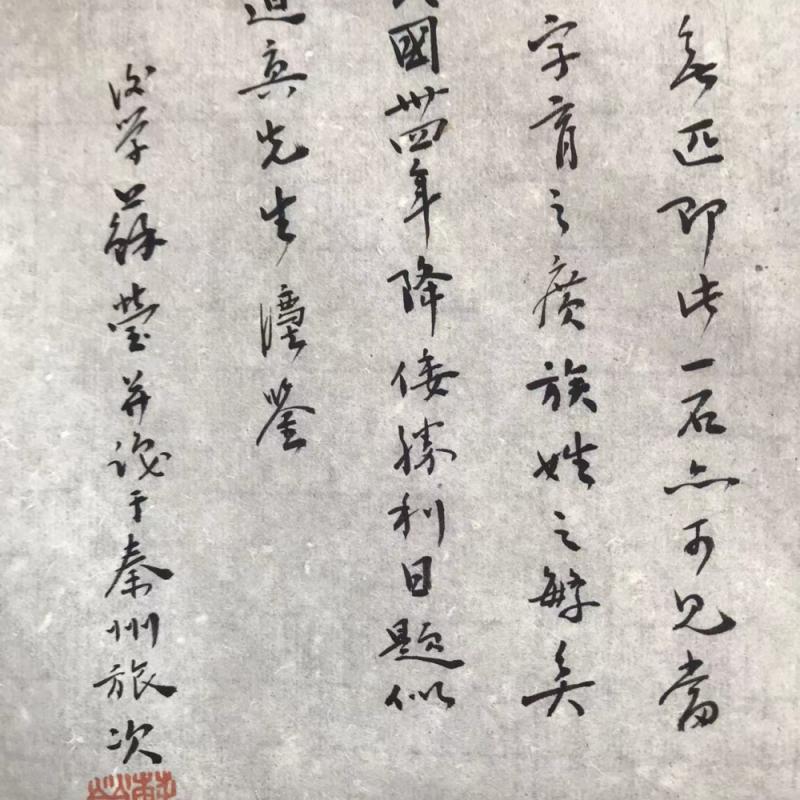 無匹即此一石亦可見當
字育之廣族姓之繁矣
國卅四年降倭勝利日題似
真先生灋鑒
後学蘇瑩并識于秦州旅次